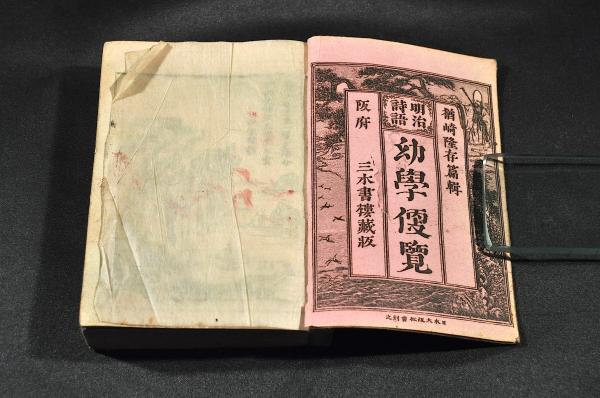 楢崎隆存篇輯
明治
詩語
幼學便覽
阪府　三木書樓藏版